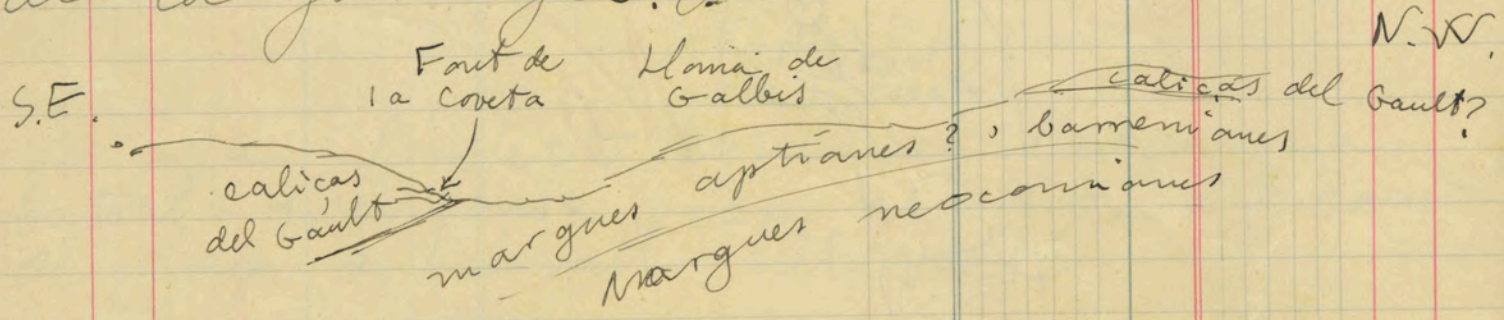 N. W.
S.E.
Font de
la Coveta
Lloma de
Galbis
calicas del Gault?
calicas
del Gault
margues aptianes?, barremianes
Margues neocomianes